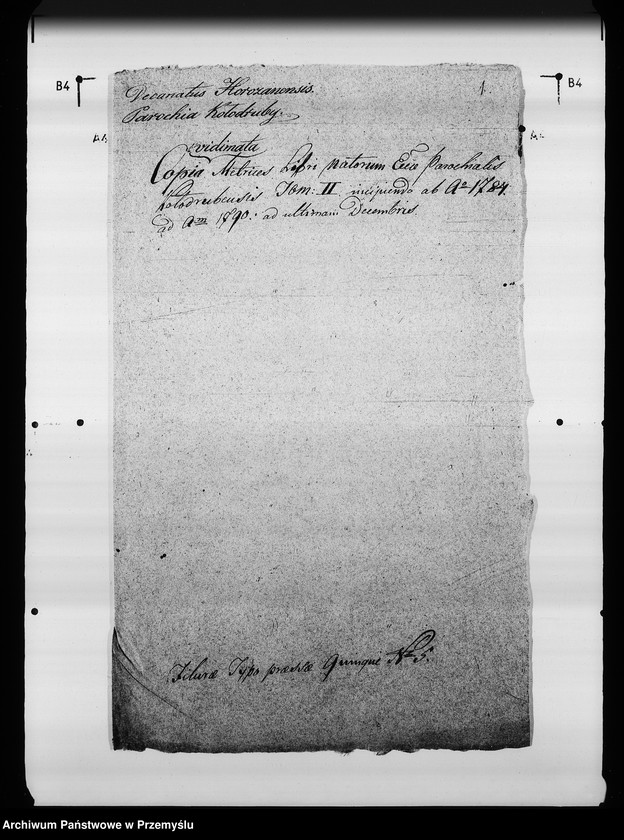 Decanatus Horozanensis.
1.
Parochia Kołodruby.
B4
B4
vidimata
Copia Metrices Libri Natorum Parochialis
Kołodrubensis Tom: II. incipiendo ab Aº 1784.
ad Aⁿᵐ 1790: ad ultimam Decembris.
Typo Quinque Nº 5.
Archiwum Państwowe w Przemyślu